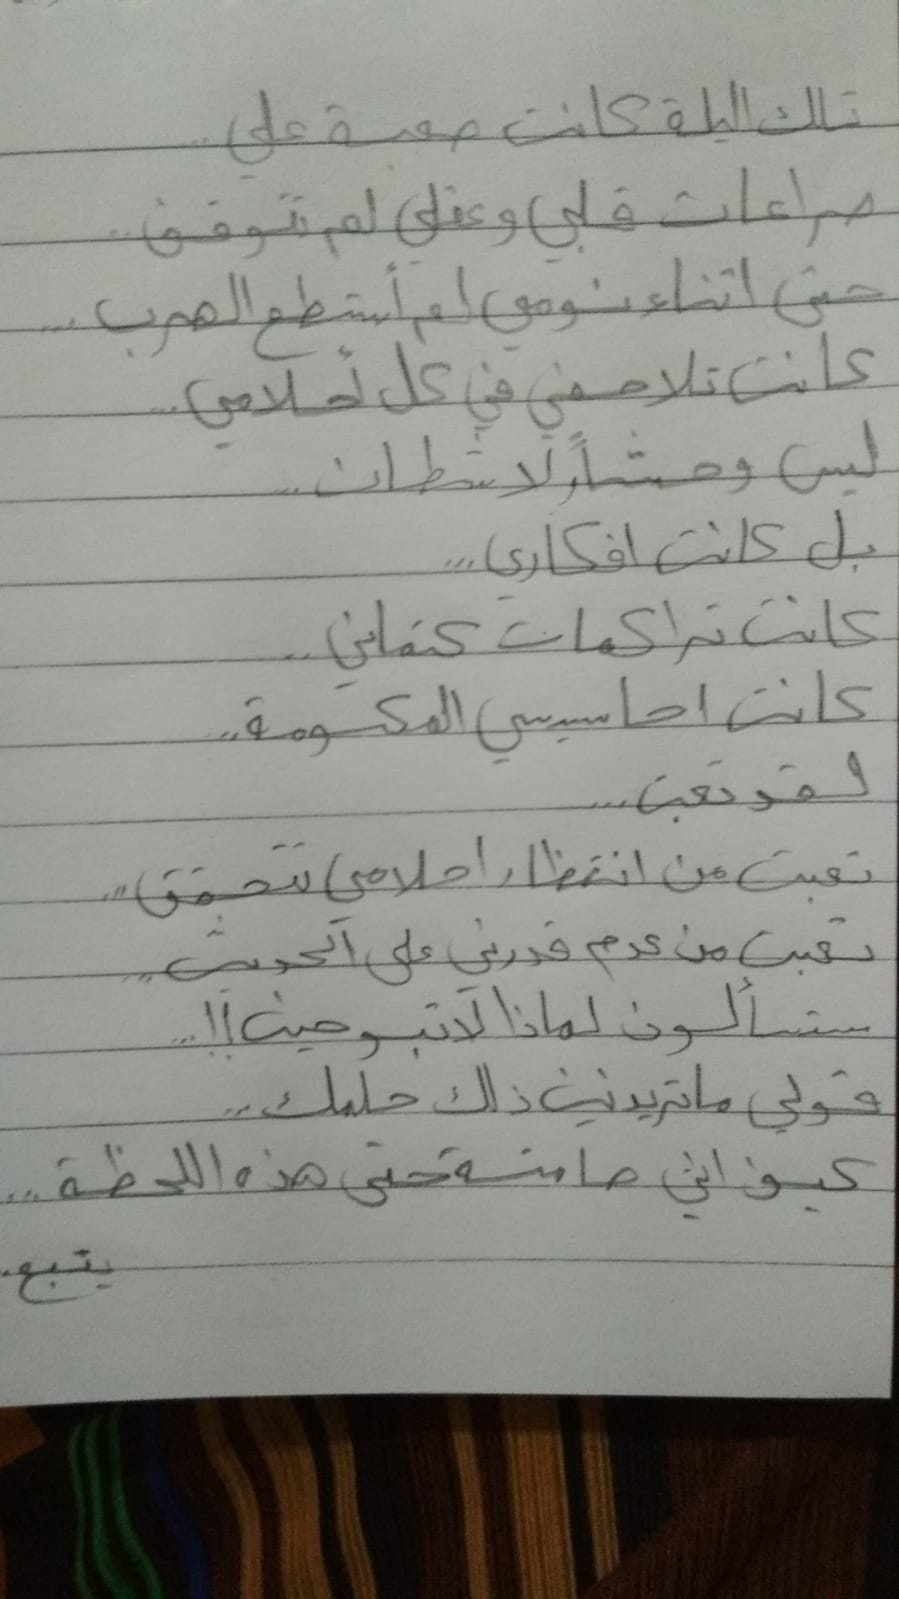 تلك اليلة كانت صعبة علي..
صراعات قلبي وعقلي لم تتوقف..
حتى اثناء نومي لم أستطع الهرب...
كانت تلاحقني في كل أحلامي...
ليس وحشاً ولا شيطان...
بل كانت افكاري...
كانت تراكمات كتماني..
كانت احاسيسي المكتومة..
لقد تعبت...
تعبت من انتظار احلامي تتحقق...
تعبت من عدم قدرتي على التحدث...
ستسألون لماذا لا تبوحين!!...
قولي ماتريدين ذاك حلمك...
كيف اني صامتة حتى هذه اللحظة...
يتبع.